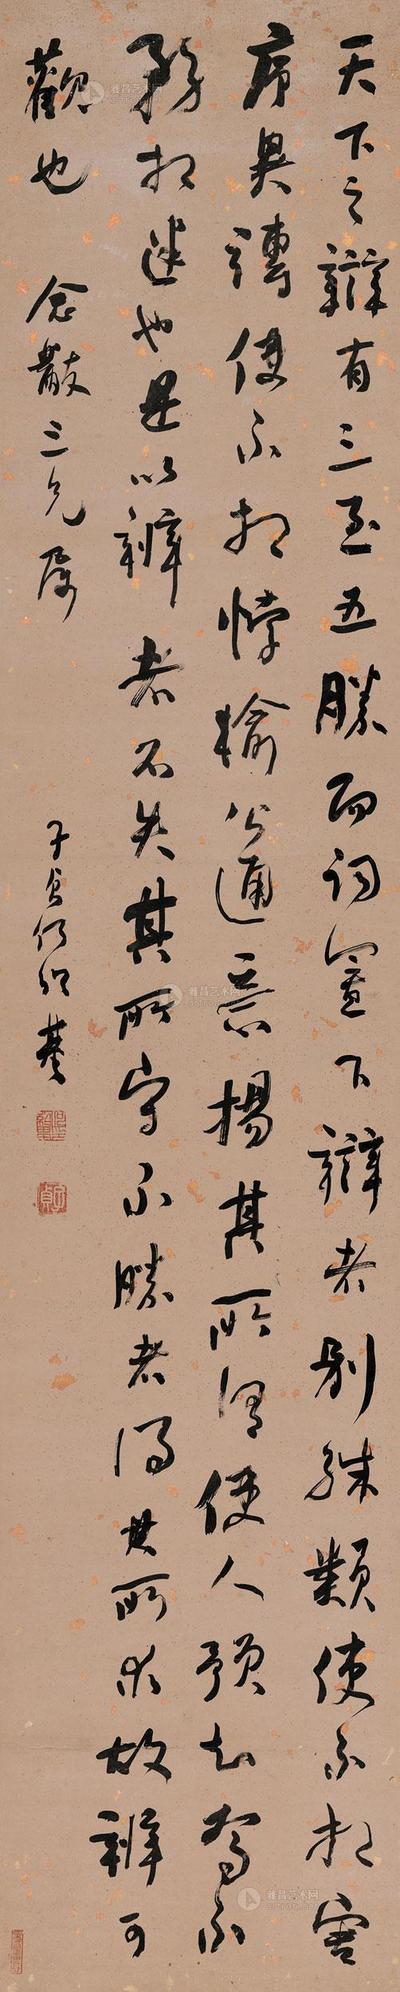 天下之辯有三至五勝而詞寘下辯者別殊類使不相害
序異譚使不相悖揄公通意揚其所謂使人預知焉不
務相迷也是以辯者不失其所守不勝者得其所求故辯可
觀也 念敬三兄屬
子貞何紹基